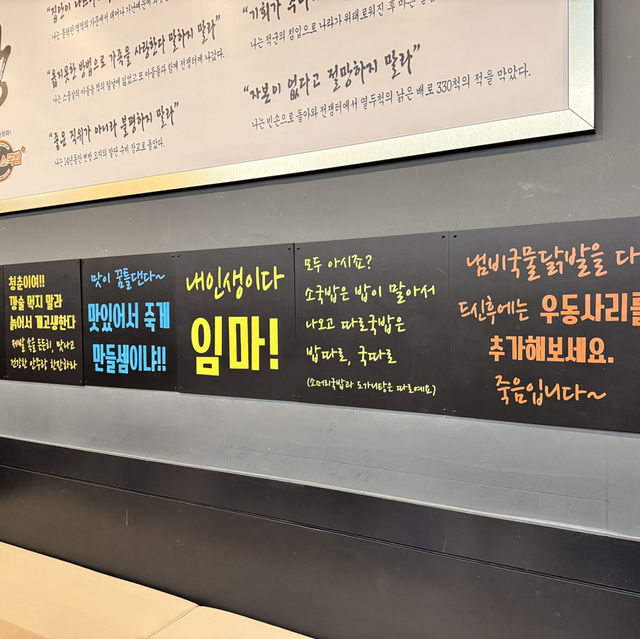 "옳지못한 방법으로 가족을 사랑한다 말하지 말라"
"좋은 직위가 아니라 불평하지 말라"
나는 14년동안 변방 오지의 말단 수비 장교로 돌았다.
나는 적군의 침입으로 나라가 위태로워진 후 마
"자본이 없다고 절망하지 말라"
나는 빈손으로 돌아와 전쟁터에서 열두척의 낡은 배로 330척의 적을 막았다.
청춘이여!!
깡술 먹지 말라
늙어서 개고생한다
제발 술을 드릴
맛이 꿈틀댄다~
맛있어서 죽게
만들셈이냐!!
내인생이다
임마!
모두 아시죠?
소국밥은 밥이 말아서
나오고 따로국밥은
밥따로, 국따로
(소머리국밥과 도가니탕은 따로예요)
냄비국물닭발을 다
드신후에는 우동사리를
추가해보세요.
죽음입니다~